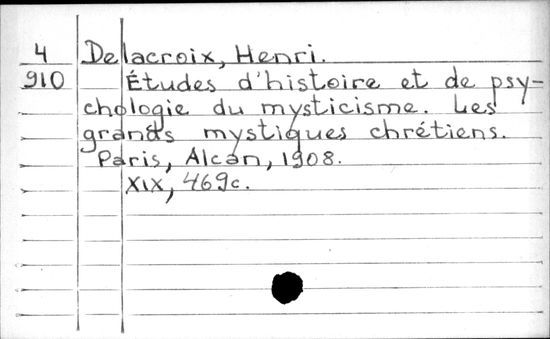 4 Delacroix, Henri.
910 Études d'histoire et de psy-
chologie du mysticisme. Les
grands mystiques chrétiens.
Paris, Alcan, 1908.
XIX, 469c.